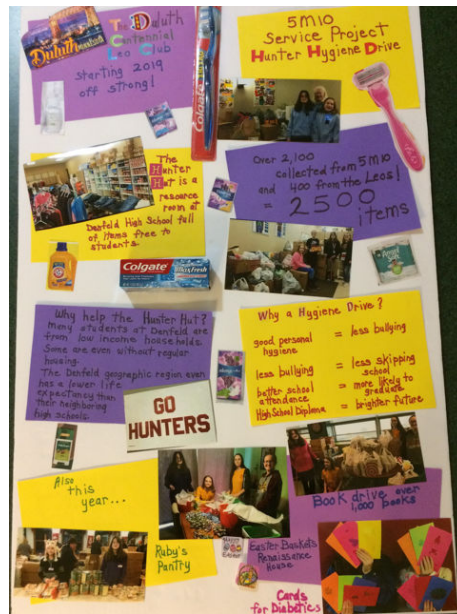 Duluth
The Duluth
Centennial
Leo Club
starting 2019
off strong!
Colgate
5M10
Service Project
Hunter Hygiene Drive
The
Hunter
Hut is a
resource
room at
Denfeld High School full
of items free to
students.
Over 2,100
collected from 5M10
and 400 from the Leos!
= 2500
items
Colgate
MaxFresh
Why help the Hunter Hut?
Many students at Denfeld are
from low income households.
Some are even without regular
housing.
The Denfeld geographic region even
has a lower life
expectancy than
their neighboring
high schools.
GO
HUNTERS
Why a Hygiene Drive?
good personal hygiene = less bullying
less bullying = less skipping school
better school attendance = more likely to graduate
High School Diploma = brighter future
Also
this
year...
Ruby's
Pantry
Book drive over
1,000 books
Easter Baskets
Renaissance
House
Cards
for Diabetics